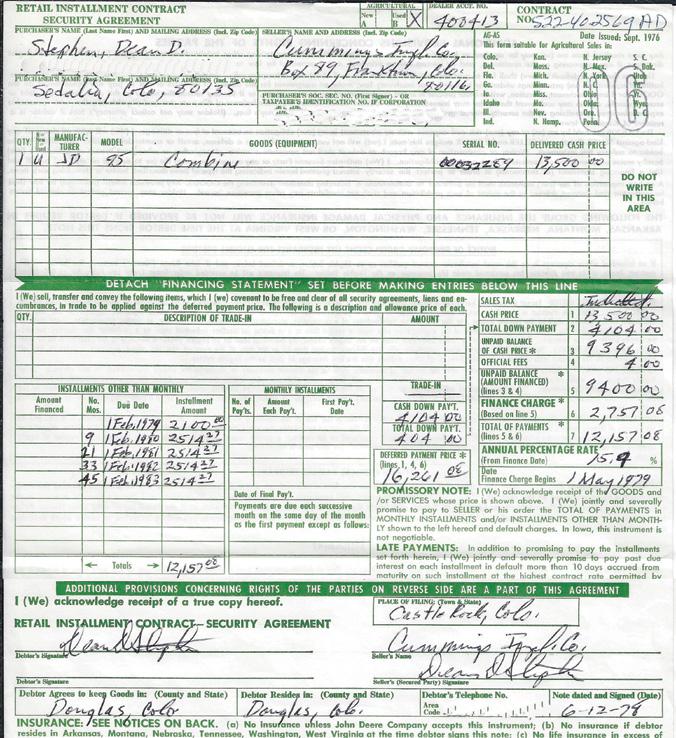 RETAIL INSTALLMENT CONTRACT
SECURITY AGREEMENT
AGRICULTURAL
New A Used B X
DEALER ACCT. NO.
403413
CONTRACT
NO. 522-402569 AD
PURCHASER'S NAME (Last Name First) AND MAILING ADDRESS (Incl. Zip Code)
Stephen, Dean D.
SELLER'S NAME AND ADDRESS (Incl. Zip Code)
Cummings Impl. Co.
Box 89, Franktown, Colo.
80116
PURCHASER'S NAME (Last Name First) AND MAILING ADDRESS (Incl. Zip Code)
Sedalia, Colo, 80135
PURCHASER'S SOC. SEC. NO. (First Signer) - OR
TAXPAYER'S IDENTIFICATION NO. IF CORPORATION
AG-AS Date Issued: Sept. 1976
This form suitable for Agricultural Sales in:
Colo. Kan. N. Jersey S. C.
Del. Mass. N. Mex. S. Dak.
Fla. Mich. N. York Utah
Ga. Minn. N. C. Vt.
Ia. Miss. Ohio Va.
Idaho Mo. Okla. Wyo.
Ill. Nev. Ore. D. C.
Ind. N. Hamp. Penn.
06
QTY. MANUFACTURER MODEL GOODS (EQUIPMENT) SERIAL NO. DELIVERED CASH PRICE
1 U JD 95 Combine 13,500 00
DO NOT
WRITE
IN THIS
AREA
DETACH "FINANCING STATEMENT" SET BEFORE MAKING ENTRIES BELOW THIS LINE
I (We) sell, transfer and convey the following items, which I (we) covenant to be free and clear of all security agreements, liens and encumbrances, in trade to be applied against the deferred payment price. The following is a description and allowance price of each.
QTY. DESCRIPTION OF TRADE-IN AMOUNT
SALES TAX
CASH PRICE 1 13,500 00
TOTAL DOWN PAYMENT 2 4104 00
UNPAID BALANCE OF CASH PRICE * 3 9396 00
OFFICIAL FEES 4 4 00
UNPAID BALANCE * (AMOUNT FINANCED) (lines 3 & 4) 5 9400 00
FINANCE CHARGE * (Based on line 5) 6 2,757 08
TOTAL OF PAYMENTS * (lines 5 & 6) 7 12,157 08
ANNUAL PERCENTAGE RATE (From Finance Date) 15.9 %
Date Finance Charge Begins 1 May 1979
INSTALLMENTS OTHER THAN MONTHLY
Amount Financed No. Mos. Due Date Installment Amount
1 Feb. 1979 2100 00
9 1 Feb. 1980 2514 27
21 1 Feb. 1981 2514 27
33 1 Feb. 1982 2514 27
45 1 Feb. 1983 2514 27
Totals 12,157 08
MONTHLY INSTALLMENTS
No. of Pay'ts. Amount Each Pay't. First Pay't. Date
Date of Final Pay't.
Payments are due each successive
month on the same day of the month
as the first payment except as follows:
TRADE-IN
CASH DOWN PAY'T.
4104 00
TOTAL DOWN PAY'T.
404 00
DEFERRED PAYMENT PRICE *
(lines, 1, 4, 6)
16,261 08
PROMISSORY NOTE: I (We) acknowledge receipt of the GOODS and
/or SERVICES whose price is shown above. I (We) jointly and severally
promise to pay to SELLER or his order the TOTAL OF PAYMENTS in
MONTHLY INSTALLMENTS and/or INSTALLMENTS OTHER THAN MONTH-
LY shown to the left hereof and default charges. In Iowa, this instrument is
not negotiable.
LATE PAYMENTS: In addition to promising to pay the installments
set forth herein, I (We) jointly and severally promise to pay past due
interest on each installment in default more than 10 days accrued from
maturity on such installment at the highest contract rate permitted by
ADDITIONAL PROVISIONS CONCERNING RIGHTS OF THE PARTIES ON REVERSE SIDE ARE A PART OF THIS AGREEMENT
I (We) acknowledge receipt of a true copy hereof.
PLACE OF FILING: (Town & State)
Castle Rock, Colo.
RETAIL INSTALLMENT CONTRACT - SECURITY AGREEMENT
Dean D Stephen
Debtor's Signature
Cummings Impl. Co.
Seller's Name
Debtor's Signature
Seller's (Secured Party) Signature
Debtor Agrees to keep Goods in: (County and State)
Douglas, Colo
Debtor Resides in: (County and State)
Douglas, Colo
Debtor's Telephone No.
Area Code
Note dated and Signed (Date)
6-12-78
INSURANCE: SEE NOTICES ON BACK. (a) No insurance unless John Deere Company accepts this instrument; (b) No insurance if debtor
resides in Arkansas, Montana, Nebraska, Tennessee, Washington, West Virginia at the time debtor signs this note; (c) No life insurance in excess of